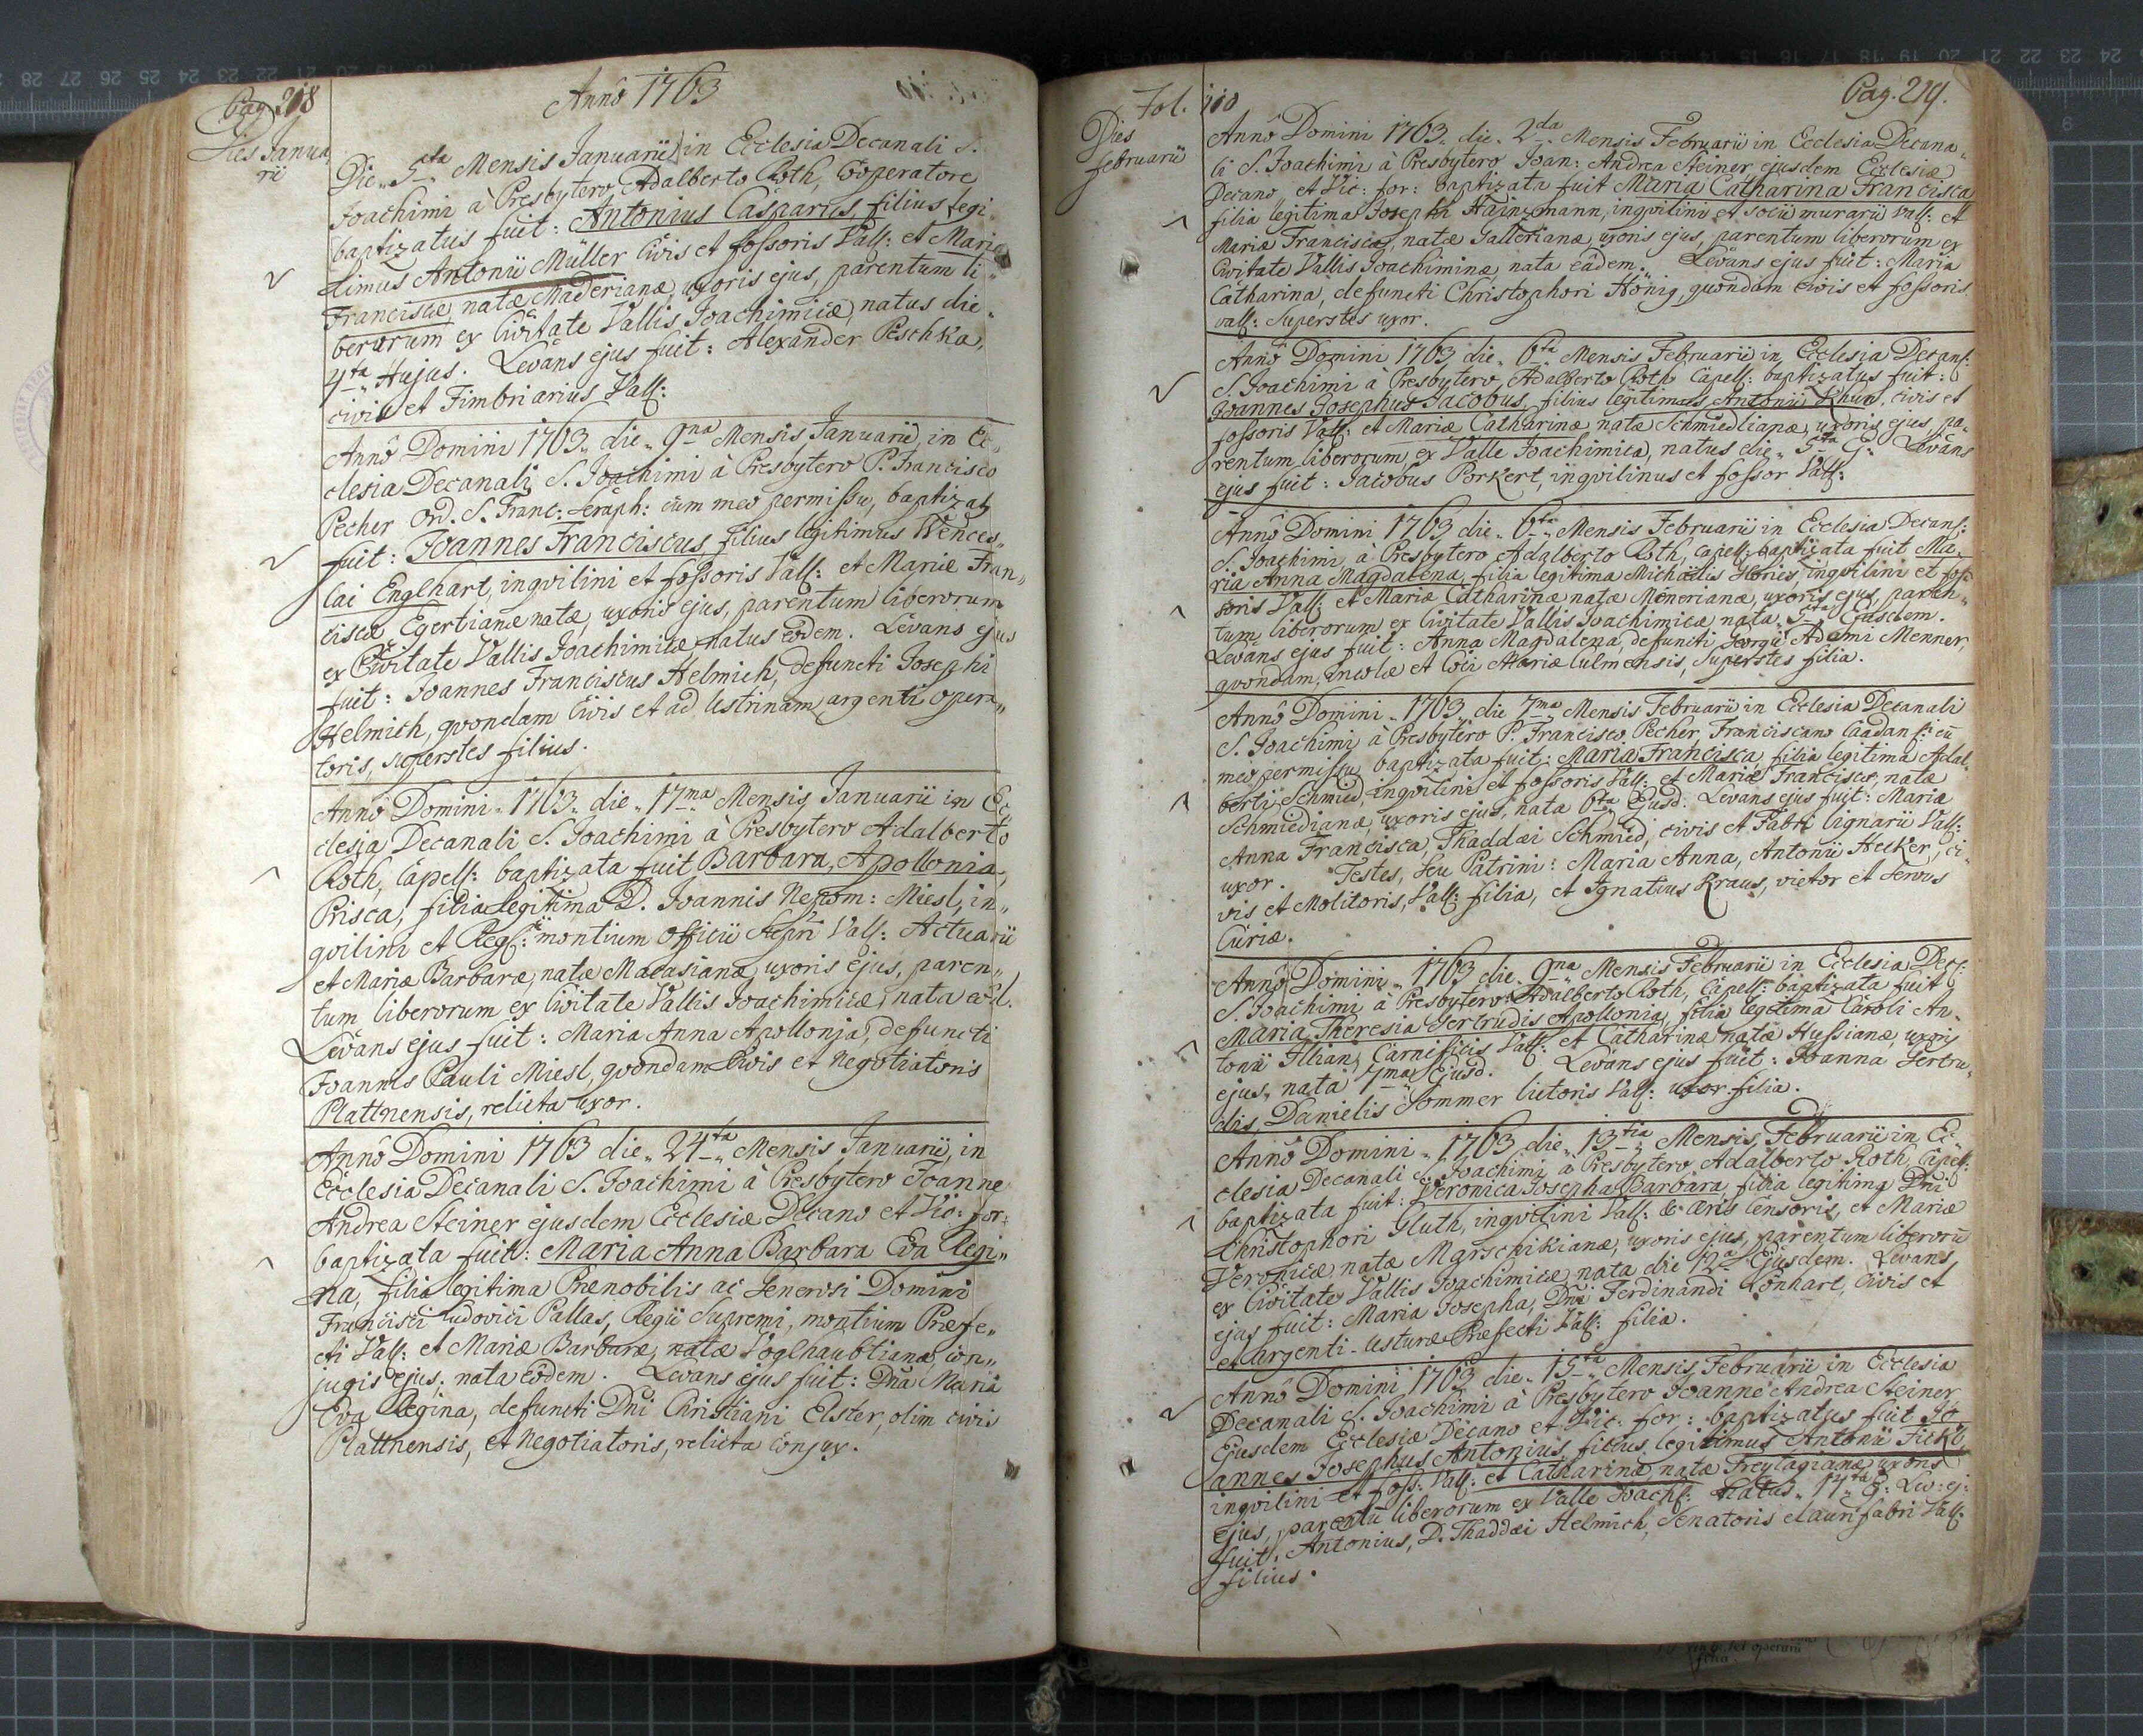 Pag. 218
Annô 1763
Dies Janua
rii
Die 5ta Mensis Januarii in Ecclesia Decanali S.
Joachimi à Presbytero Adalberto Roth, Cooperatore
baptizatus fuit: Antonius Casparius, filius legi
timus Antonii Müller Civis et fossoris Vall: et Mariæ
Franciscæ, natæ Maderianæ, uxoris ejus, parentum li„
berorum ex Civitate Vallis Joachimicæ, natus die
4ta Hujus. Levans ejus fuit: Alexander Peschka,
civis et Fimbriarius Vall:
Annô Domini 1763 die 9na Mensis Januarii, in Ec„
clesia Decanali S. Joachimi à Presbytero P. Francisco
Pecher Ord. S. Franc: Seraph: cum meo permissu, baptizats
fuit: Joannes Franciscus, filius legitimus Wences„
lai Englhart, inqvilini et fossoris Vall: et Mariæ Fran„
ciscæ Egertianæ natæ, uxoris ejus, parentum liberorum
ex Civitate Vallis Joachimicæ natus eôdem. Levans ejus
fuit: Joannes Franciscus Helmich, defuncti Josephi
Helmich, qvondam Civis et ad Ustrinam argenti opera„
toris, superstes filius.
Annô Domini 1763 die 17ma Mensis Januarii in Ec„
clesia Decanali S. Joachimi à Presbytero Adalberto
Roth, Capell: baptizata fuit Barbara, Apollonia,
Prisca, filia legitima D. Joannis Nepom: Miesl, in„
qvilini et Reg: montium Officii Vall: Actuarii
et Mariæ Barbaræ, natæ Macasianæ, uxoris ejus, paren„
tum liberorum ex Civitate Vallis Joachimicæ, nata eôd.
Levans ejus fuit: Maria Anna Apollonia, defuncti
Joannis Pauli Miesl, qvondam Civis et Negotiatoris
Plattnensis, relicta uxor.
Annô Domini 1763 die 24ta Mensis Januarii, in
Ecclesia Decanali S. Joachimi à Presbytero Joanne
Andrea Steiner ejusdem Ecclesiæ Decano et Vic: for:
baptizata fuit: Maria Anna Barbara Eva Regi„
na, filia legitima Prænobilis ac Generosi Domini
Francisci Ludovici Pallas, Regii Supremi, montium Præfe„
cti Vall: et Mariæ Barbaræ, natæ Voglhaubtianæ, con„
jugis ejus, nata eôdem. Levans ejus fuit: Dña Maria
Eva Regina, defuncti Dñi Christiani Elster, olim civis
Plattnensis, et Negotiatoris, relicta conjux.
Fol. 110
Pag. 219.
Dies
februarii
Annô Domini 1763 die 2da Mensis Februarii in Ecclesia Decana„
li S. Joachimi à Presbytero Joan: Andrea Steiner, ejusdem Ecclesiæ
Decano et Vic: for: baptizata fuit Maria Catharina Francisca
filia legitima Joseph Hainzmann, inqvilini et Socii murarii Vall: et
Mariæ Franciscæ, natæ Gallerianæ, uxoris ejus, parentum liberorum ex
Civitate Vallis Joachiminæ, nata eâdem. Levans ejus fuit: Maria
Catharina, defuncti Christophori Hönig, qvondam civis et fossoris
Vall: Superstes uxor.
Annô Domini 1763 die 6ta Mensis Februarii in Ecclesia Decanl:
S. Joachimi à Presbytero Adalberto Roth Capell: baptizatus fuit:
Joannes Josephus Jacobus, filius legitimus Antonii Khun, civis et
fossoris Vall: et Mariæ Catharinæ, natæ Schmiedlianæ, uxoris ejus, pa„
rentum liberorum, ex Valle Joachimica, natus die 5ta E: Levans
ejus fuit: Jacobus Porkert, inqvilinus et fossor Vall:
Annô Domini 1763 die 6ta Mensis Februarii in Ecclesia Decanl:
S. Joachimi, à Presbytero Adalberto Roth, Capell: baptizata fuit Ma„
ria Anna Magdalena, filia legitima Michaelis Hories, inqvilini et fos„
soris Vall: et Mariæ Catharinæ natæ Menerianæ, uxoris ejus, paren„
tum liberorum ex Civitate Vallis Joachimicæ nata 5ta Ejusdem.
Levans ejus fuit: Anna Magdalena, defuncti Georgii Adami Menner,
qvondam, incolæ et Loci Mariæculmensis, Superstes filia.
Annô Domini 1763 die 7ma Mensis Februarii in Ecclesia Decanali
S. Joachimi à Presbytero P. Francisco Pecher, Franciscano Caadan: cũ
meo permissu, baptizata fuit: Maria Francisca, filia legitima Adal„
berti Schmied, inqvilini et fossoris Vall: et Mariæ Franciscæ, natæ
Schmiedianæ, uxoris ejus, nata 6ta Ejusd. Levans ejus fuit: Maria
Anna Francisca, Thaddæi Schmied, civis et Fabri lignarii Vall:
uxor. Testes, seu Patrini: Maria Anna, Antonii Hecker, ci„
vis et Molitoris, Vall: filia, et Ignatius Kraus, vietor et Servus
Curiæ.
Annô Domini 1763 die 9na Mensis Februarii in Ecclesia Dec:
S. Joachimi à Presbytero Adalberto Roth, Capell: baptizata fuit
Maria Theresia Gertrudis Apollonia, filia legitima Caroli An„
tonii Illian, Carnificis Vall: et Catharinæ natæ Hussianæ, uxoris
ejus, nata 7ma Ejusd. Levans ejus fuit: Joanna Gertru„
dis, Danielis Sommer lictoris Vall: uxor filia.
Annô Domini 1763 die 13tia Mensis Februarii in Ec
clesia Decanali S. Joachimi à Presbytero Adalberto Roth, Capell:
baptizata fuit: Veronica Josepha Barbara, filia legitima Dñi
Christophori Gluth, inqvilini Vall: & æris Censoris, et Mariæ
Veronicæ natæ Marschikianæ, uxoris ejus, parentum liberorũ
ex Civitate Vallis Joachimicæ, nata die 12a Ejusdem. Levans
ejus fuit: Maria Josepha, Dñi Ferdinandi Lönhart, Civis et
et argenti-usturæ Præfecti Vall: filia.
Annô Domini 1763 die 15ta Mensis Februarii in Ecclesia
Decanali S. Joachimi à Presbytero Joanne Andrea Steiner
Ejusdem Ecclesiæ Decano et Vic: for: baptizatus fuit Jo
annes Josephus Antonius, filius legitimus Antonii Fickl,
inqvilini et foss: Vall: et Catharinæ, natæ Freytagianæ uxoris
ejus, parentũ liberorum ex Valle Joach: natus 14ta E: Lev: ej:
fuit: Antonius, D. Thaddæi Helmich, Senatoris et aurifabri Vall:
filius.